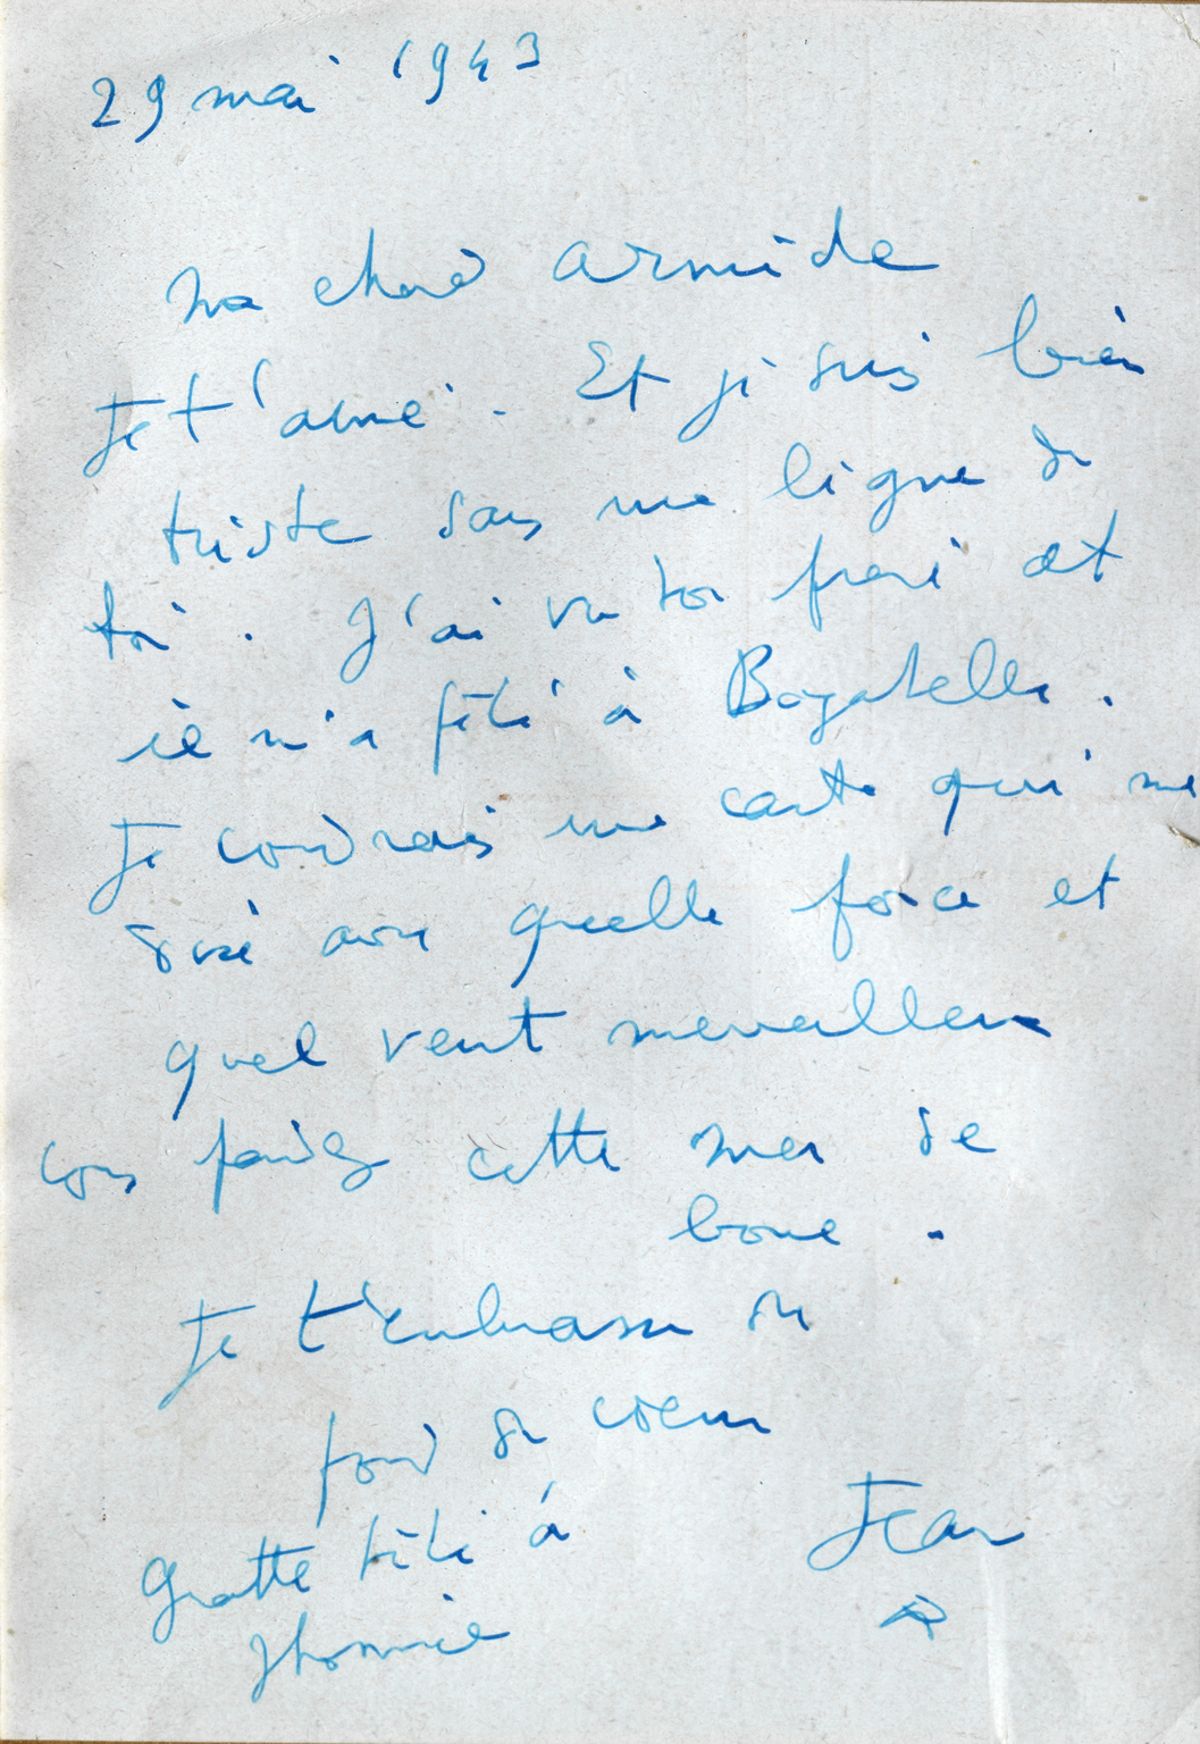 29 mai 1943
Ma chère Armide
Je t'aime. Et je suis bien
triste sans une ligne de
toi. J'ai vu ton frère et
il m'a fêté à Bagatelle.
Je voudrais une carte qui me
dise avec quelle force et
quel vent
vous cette mer de
boue.
Je t'embrasse du
fond du coeur
Jean
Gratte tête à
Jhonnie